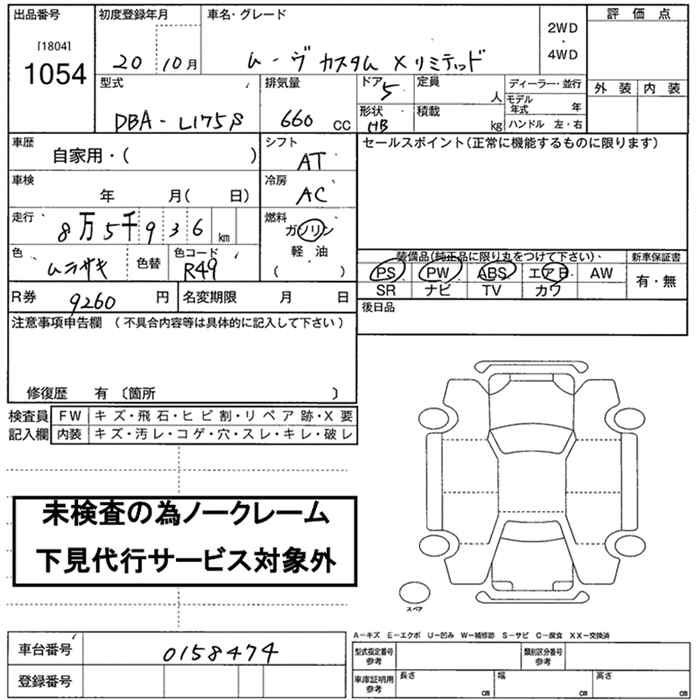 出品番号 初度登録年月 車名・グレード 2WD・4WD 評価点
[1804]
1054
20 10月 ムーヴ カスタム Xリミテッド
外装 内装
型式 排気量 ドア 定員 ディーラー・並行
DBA-L175S 660 CC 5 人 モデル年式 年
形状 積載 ハンドル 左・右
HB kg
車歴 シフト セールスポイント(正常に機能するものに限ります)
自家用・( ) AT
車検 冷房
年 月( 日) AC
走行 燃料
8万5千936 km ガソリン
軽油
( )
色 色替 色コード 装備品(純正品に限り丸をつけて下さい) 新車保証書
ムラサキ R49 PS PW ABS エアB AW 有・無
SR ナビ TV カワ
R券 9260 円 名変期限 月 日 後日品
注意事項申告欄 (不具合内容等は具体的に記入して下さい)
修復歴 有 〔箇所 〕
検査員 FW キズ・飛石・ヒビ割・リペア跡・X要
記入欄 内装 キズ・汚レ・コゲ・穴・スレ・キレ・破レ
未検査の為ノークレーム
下見代行サービス対象外
スペア
A−キズ E−エクボ U−凹み W−補修跡 S−サビ C−腐食 XX−交換済
車台番号 0158474 型式指定番号 参考 類別区分番号 参考
登録番号 車庫証明用 参考 長さ cm 幅 cm 高さ cm